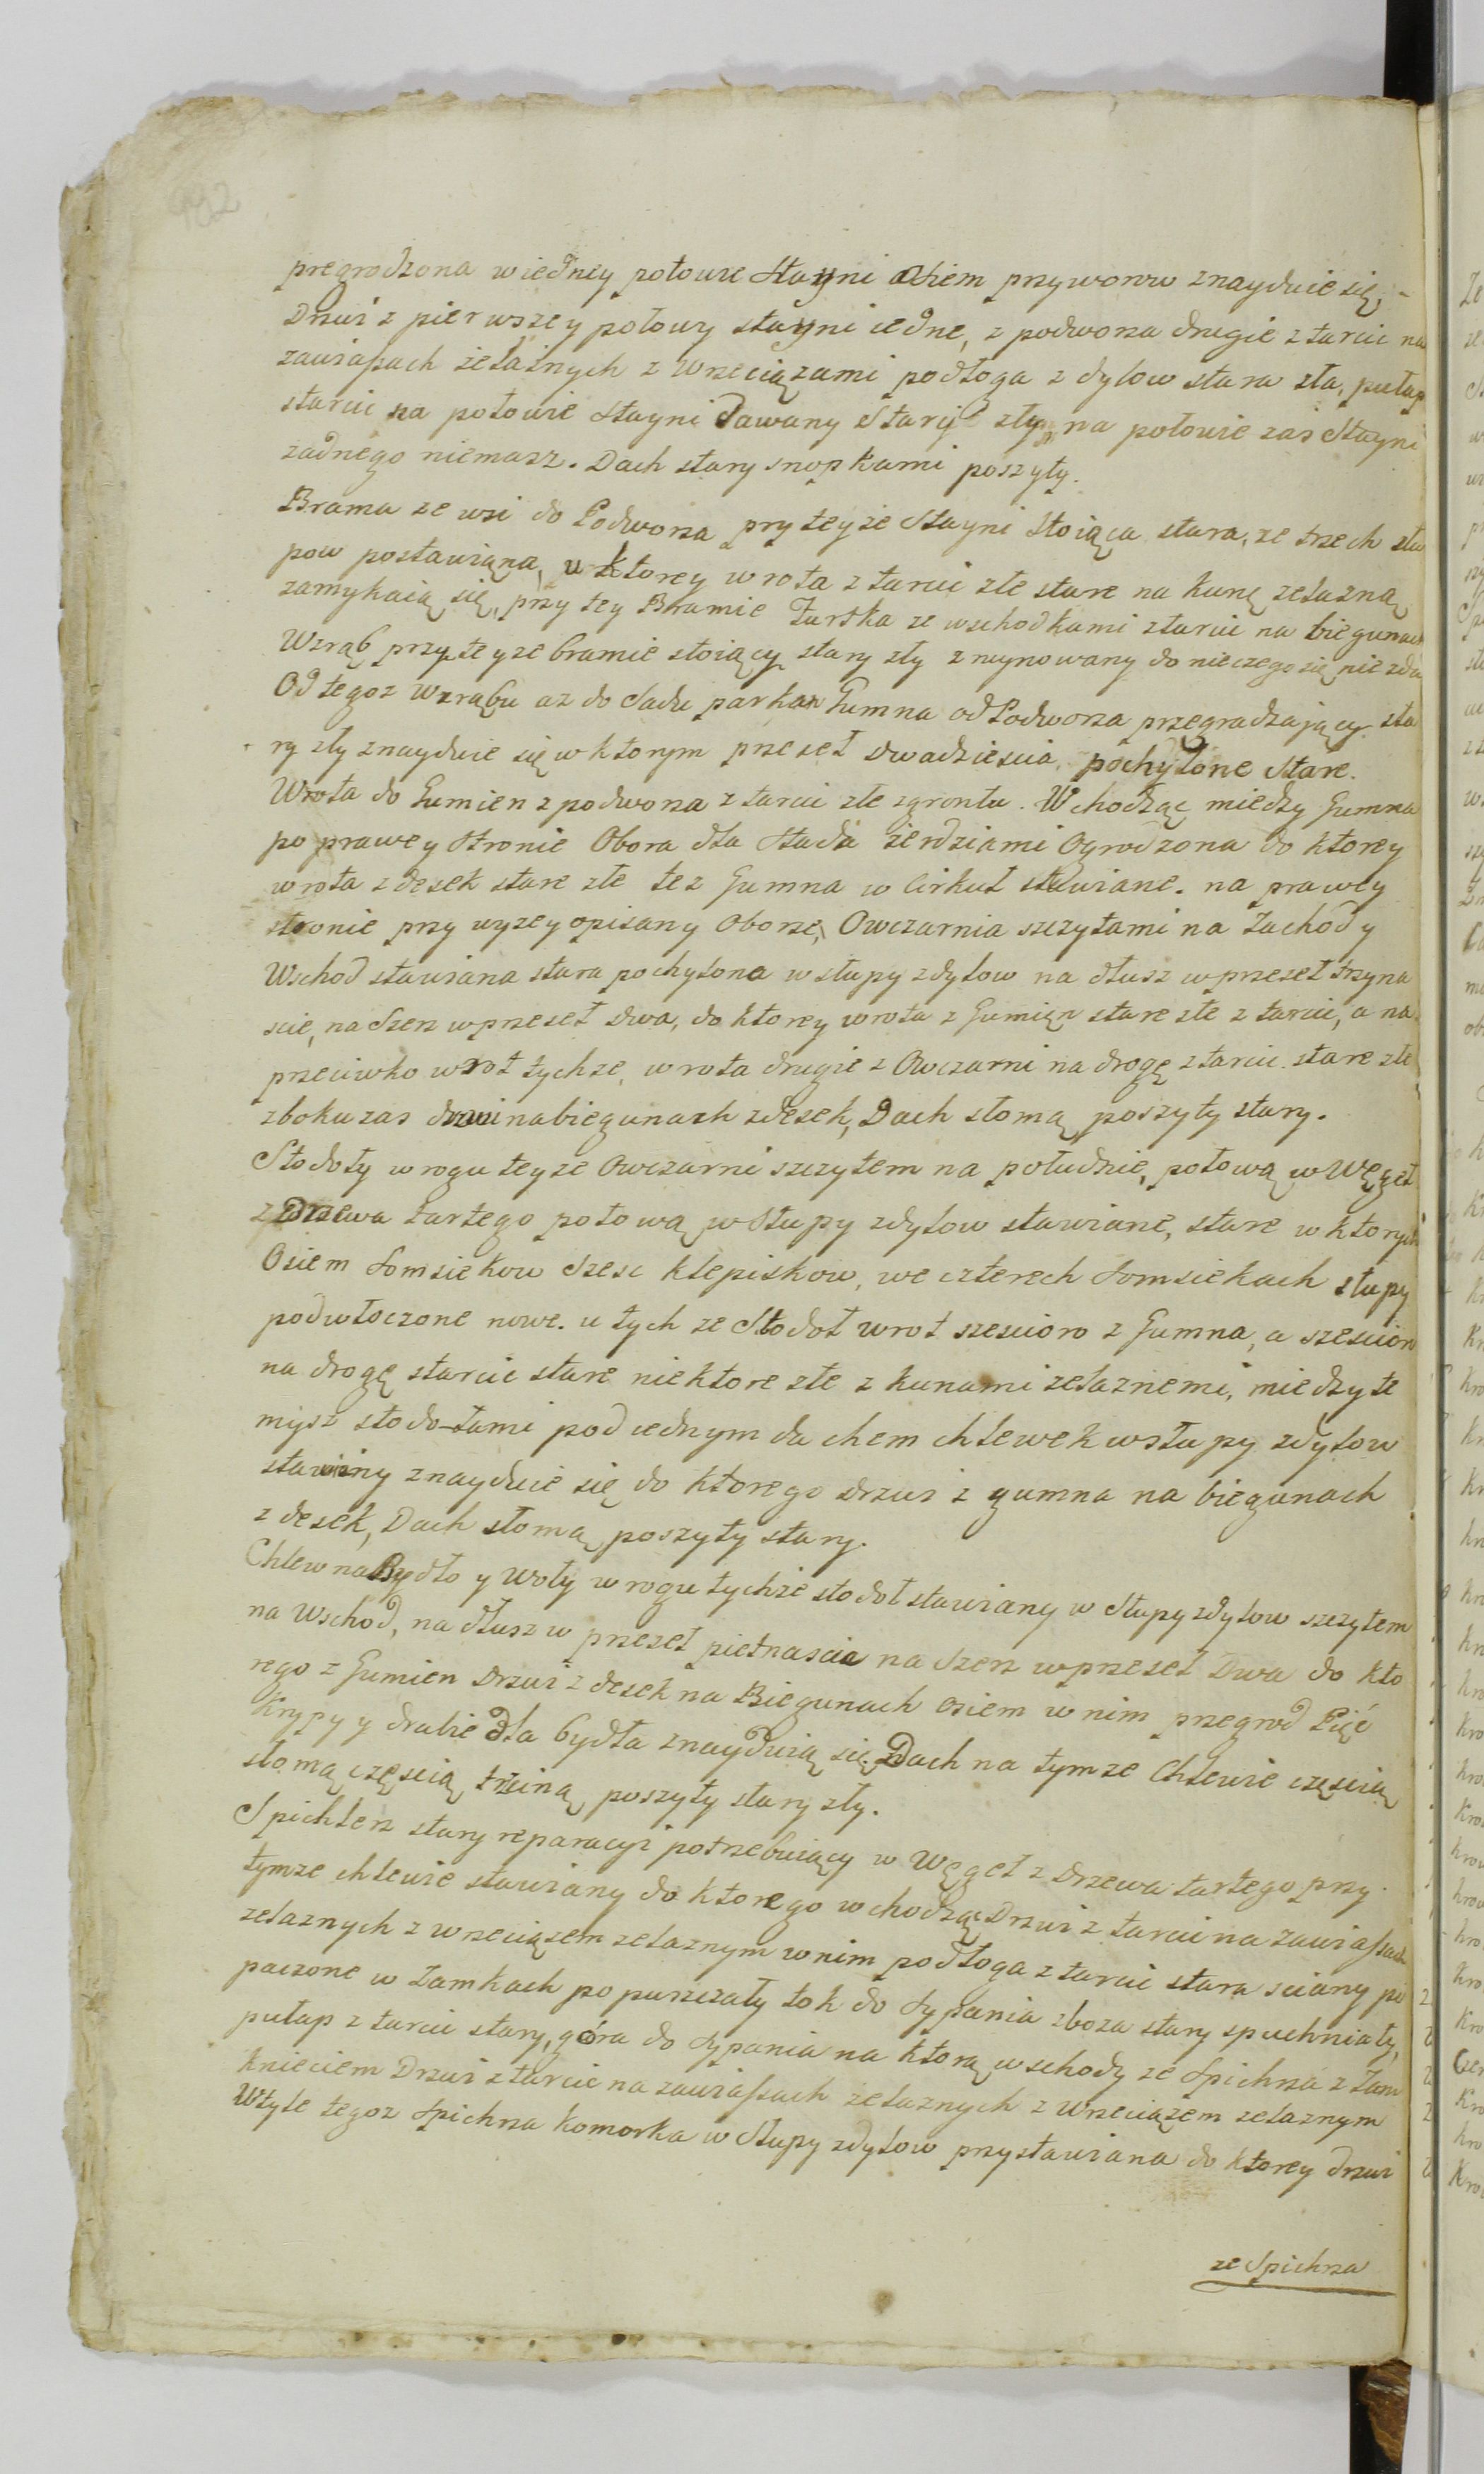 992
pregrodzona wiedney połowie stayni osiem przyworow znayduie się,
Drzwi z pierwszey połowy stayni iedne, z podworza drugie z tarcic na
zawiasach żelaznych z wrzeciązami podłoga z dylow stara zła, pułap
z tarcic na połowie stayni dawany stary zły, na połowie zas stayni
zadnego niemasz. Dach stary snopkami poszyty.
Brama ze wsi do Podworza przy teyże stayni stoiąca stara, ze trzech słu
pow postawiana, u ktorey wrota z tarcic złe stare na kunę zelazną
zamykaią się, przy tey Bramie Furtka ze wschodkami z tarcic na biegunach
Wzrąb przy teyze bramie stoiący stary zły zruynowany do nieczego się nie zda
Od tegoz wzrąbu az do sadu parkan Gumna od Podworza przegradzaiący sta
ry zły znayduie się w ktorym przeseł dwadziescia pochylone stare.
Wrota do Gumien z podworza z tarcic złe z gruntu. Wchodząc między Gumna
po prawey stronie Obora dla stada żerdziami ogrodzona do ktorey
wrota z desek stare złe tez Gumna w Cirkuł stawiane. na prawey
stronie przy wyzey opisany oborze, Owczarnia szczytami na Zachod y
Wschod stawiana stara pochylona w słupy z dylow na dłusz w przeseł trzyna
scie, na szerz w przeseł dwa, do ktorey wrota z Gumien stare złe z tarcic, a na
przeciwko wrot tychze, wrota drugie z Owczarni na drogę z tarcic stare złe
z boku zas drzwi na biegunach z desek, Dach słomą poszyty stary.
Stodoły w rogu teyze Owczarni szczytem na południe, połową w Węgeł
z Drzewa tartego połową w słupy z dylow stawiane, stare w ktorych
Osiem somsiekow szesc klepiskow, we czterech somsiekach słupy
podwłoczone nowe. u tych ze stodoł wrot szescioro z Gumna, a szescioro
na drogę z tarcic stare niektore złe z kunami zelaznemi, między te
misz stodołami pod iednym dachem chlewek w słupy z dylow
stawiany znayduie się do ktorego drzwi z gumna na biegunach
z desek, Dach słomą poszyty stary.
Chlew na Bydło y woły w rogu tychże stodoł stawiany w słupy z dylow szczytem
na wschod, na dłusz w przeseł pietnascie na szerz w przeseł Dwa do kto
rego z Gumien Drzwi z desek na Biegunach osiem w nim przegrod Pięć
Krypy y drabie dla bydła znayduią się. Dach na tymze Chlewie częscią
słomą częscią trzciną poszyty stary zły.
Spichlerz stary reparacyi potrzebuiący w Węgeł z drzewa tartego przy
tymze chlewie stawiany do ktorego wchodząc Drzwi z tarcic na zawiasach
zelaznych z wrzeciązem zelaznym w nim podłoga z tarcic stara sciany po
paczone w Zamkach popuszczały tok do sypania zboza stary spuchniały,
pułap z tarcic stary, góra do sypania na ktorą wschody ze spichrza z zam
knieciem Drzwi z tarcic na zawiasach żelaznych z wrzeciązem zelaznym
Wtyle tegoz spichrza komorka w słupy z dylow przystawiana do ktorey drzwi
ze Spichrza